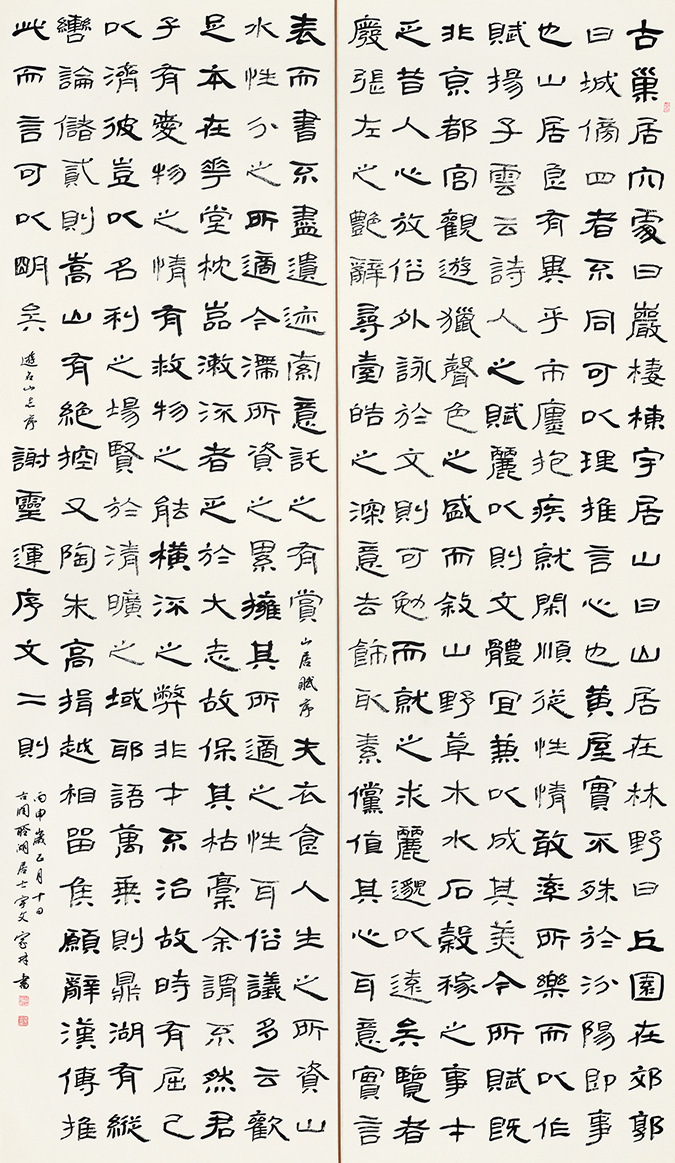 古巢居穴處曰巖棲棟宇居山曰山居在林野曰丘園在郊郭
曰城傍四者不同可以理推言心也黃屋實不殊於汾陽即事
也山居良有異乎市廛抱疾就閑順從性情敢率所樂而以作
賦揚子雲云詩人之賦麗以則文體宜兼以成其美今所賦既
非京都宮觀遊獵聲色之盛而敘山野草木水石穀稼之事才
乏昔人心放俗外詠於文則可勉而就之求麗邈以遠矣覽者
廢張左之艷辭尋臺皓之深意去飾取素儻值其心耳意實言
表而書不盡遺迹索意託之有賞 山居賦序 夫衣食人生之所資山
水性分之所適今滯所資之累擁其所適之性耳俗議多云歡
足本在華堂枕嵓漱流者乏於大志故保其枯槁余謂不然君
子有愛物之情有救物之能橫流之弊非才不治故時有屈己
以濟彼豈以名利之場賢於清曠之域耶語萬乘則鼎湖有縱
轡論儲貳則嵩山有絕控又陶朱高揖越相留侯願辭漢傅推
此而言可以明矣 遊名山志序 謝靈運序文二則
丙申歲正月十日
湖居士宇文家林書